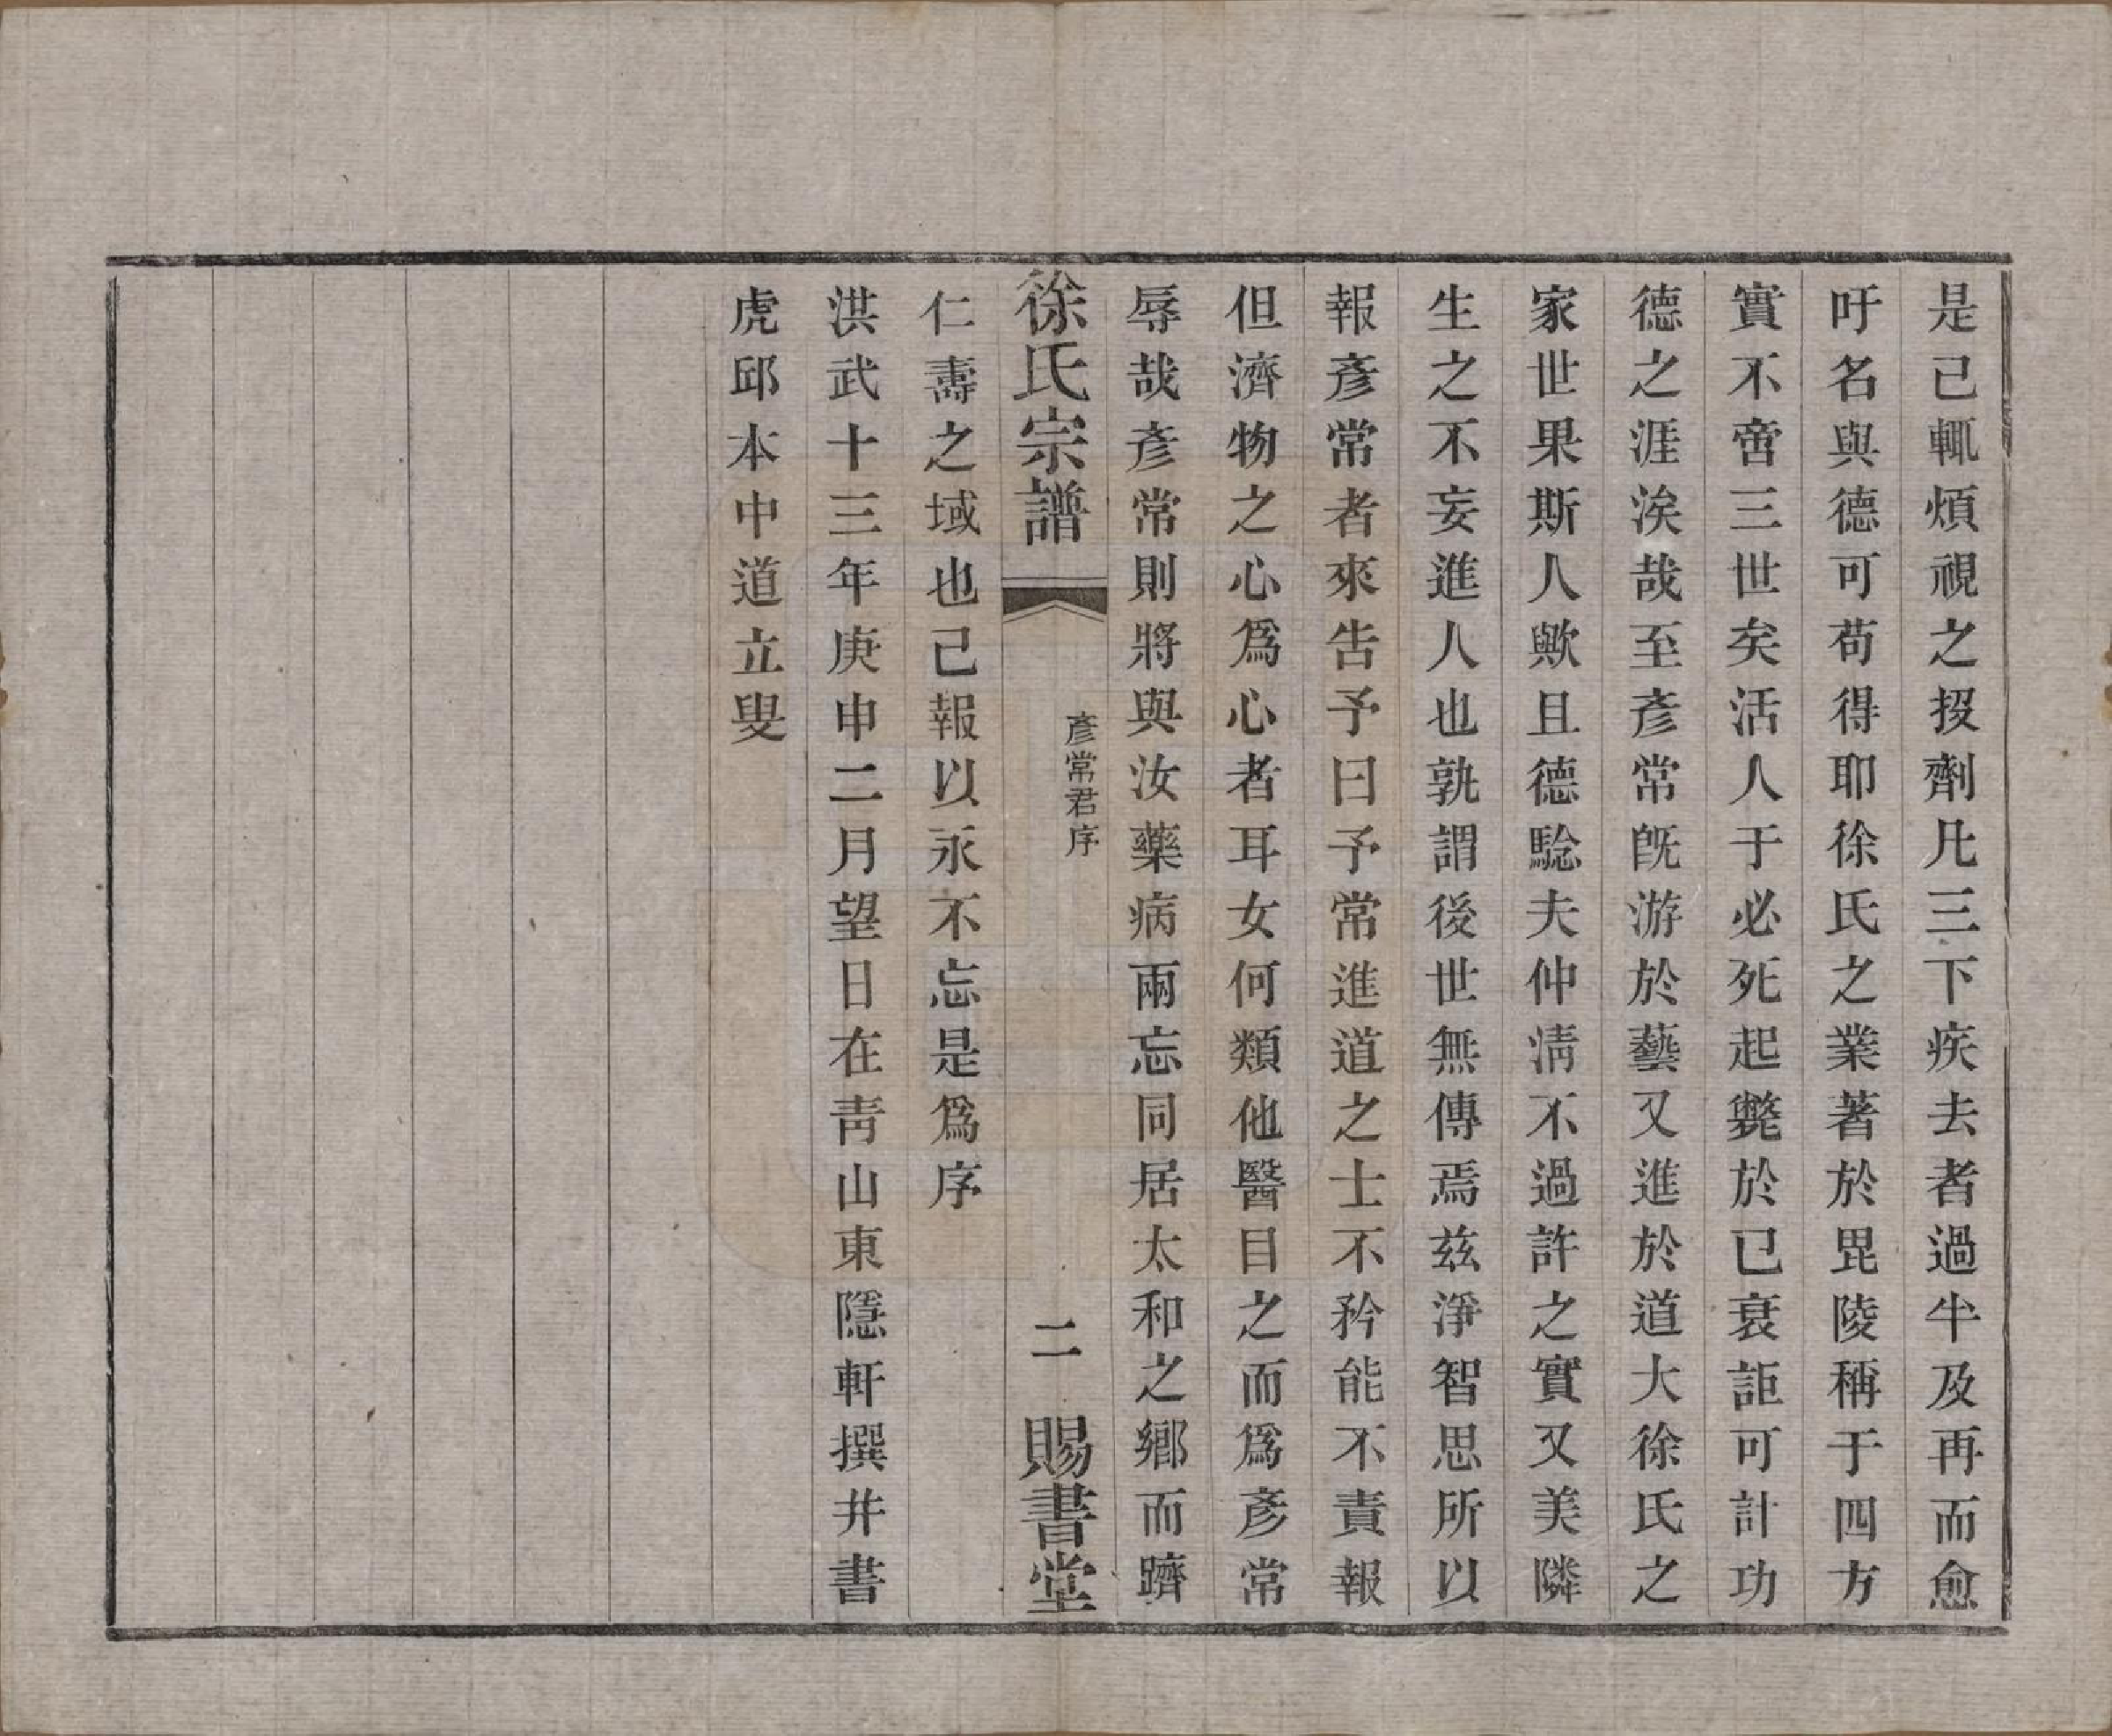 是已輒煩視之投劑凡三下疾去者過半及再而愈
吁名與德可苟得耶徐氏之業著於毘陵稱于四方
實不啻三世矣活人于必死起斃於已衰詎可計功
德之涯涘哉至彥常旣游於藝又進於道大徐氏之
家世果斯人歟且德騐夫仲清不過許之實又美隣
生之不妄進人也孰謂後世無傳焉茲淨智思所以
報彥常者來告予曰予常進道之士不矜能不責報
但濟物之心爲心者耳女何類他醫目之而爲彥常
辱哉彥常則將與汝藥病兩忘同居太和之鄉而躋
徐氏宗譜
彥常君序
二
賜書堂
仁壽之域也己報以永不忘是爲序
洪武十三年庚申二月望日在靑山東隱軒撰井書
虎邱本中道立叟